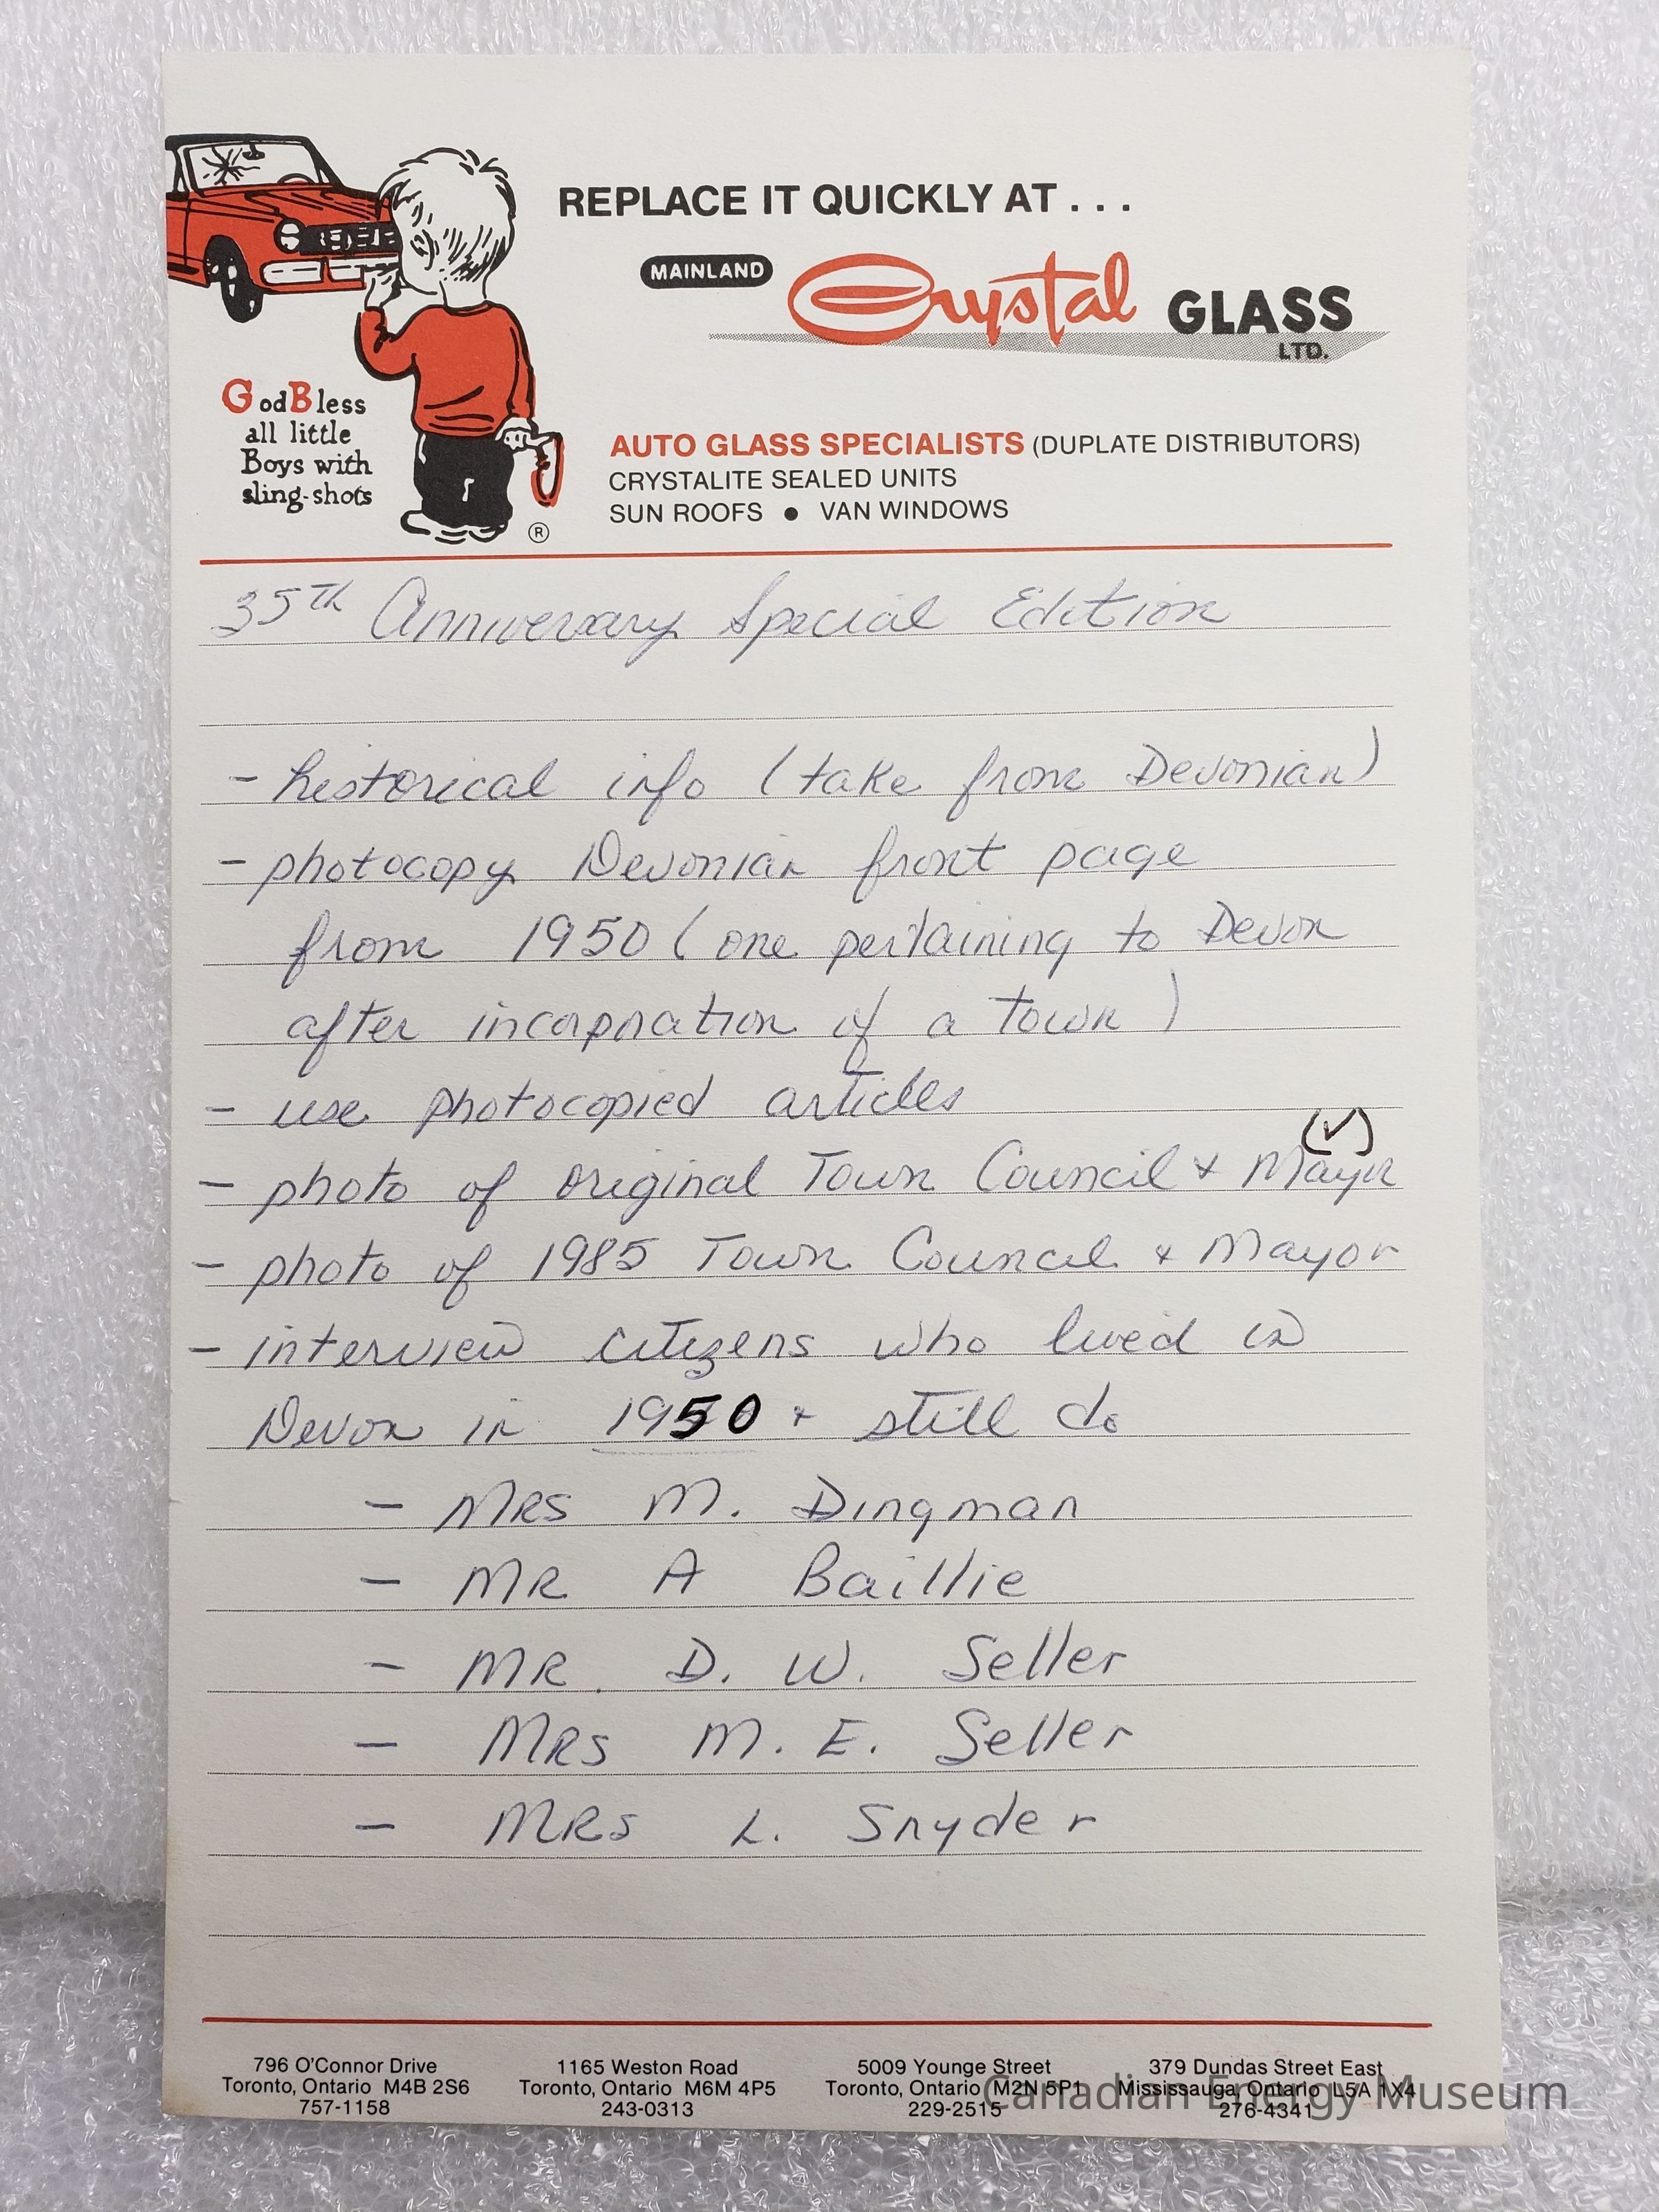 REPLACE IT QUICKLY AT . . .
MAINLAND Crystal GLASS LTD.
God Bless
all little
Boys with
sling-shots
®
AUTO GLASS SPECIALISTS (DUPLATE DISTRIBUTORS)
CRYSTALITE SEALED UNITS
SUN ROOFS • VAN WINDOWS
35TH Anniversary Special Edition
- historical info (take from Devonian)
- photocopy Devonian front page
from 1950 (one pertaining to Devon
after incorporation of a town)
- use photocopied articles
(✓)
- photo of original Town Council + Mayor
- photo of 1985 Town Council + Mayor
- interview citizens who lived in
Devon in 1950 + still do
- MRS M. Dingman
- MR A Baillie
- MR. D. W. Seller
- MRS M. E. Seller
- MRS L. Snyder
796 O'Connor Drive
Toronto, Ontario M4B 2S6
757-1158
1165 Weston Road
Toronto, Ontario M6M 4P5
243-0313
5009 Younge Street
Toronto, Ontario M2N 5P1
229-2515
379 Dundas Street East
Mississauga, Ontario L5A 1X4
276-4341
Canadian Energy Museum